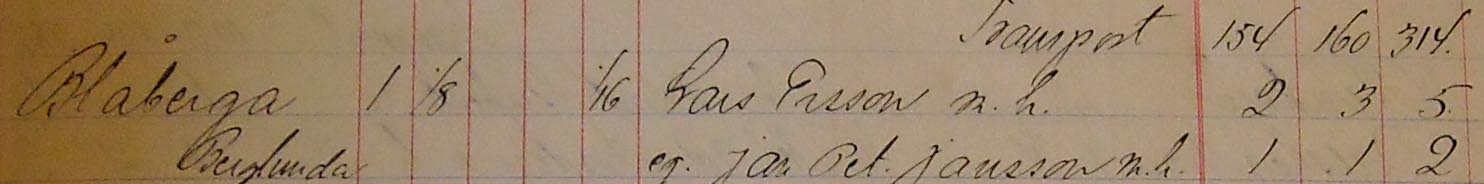 Transport 154 160 314.
Blåberga 1 1/8 1/16 Lars Ersson m. h. 2 3 5
Berglunda eg. Jan Pet. Jansson m.h. 1 1 2